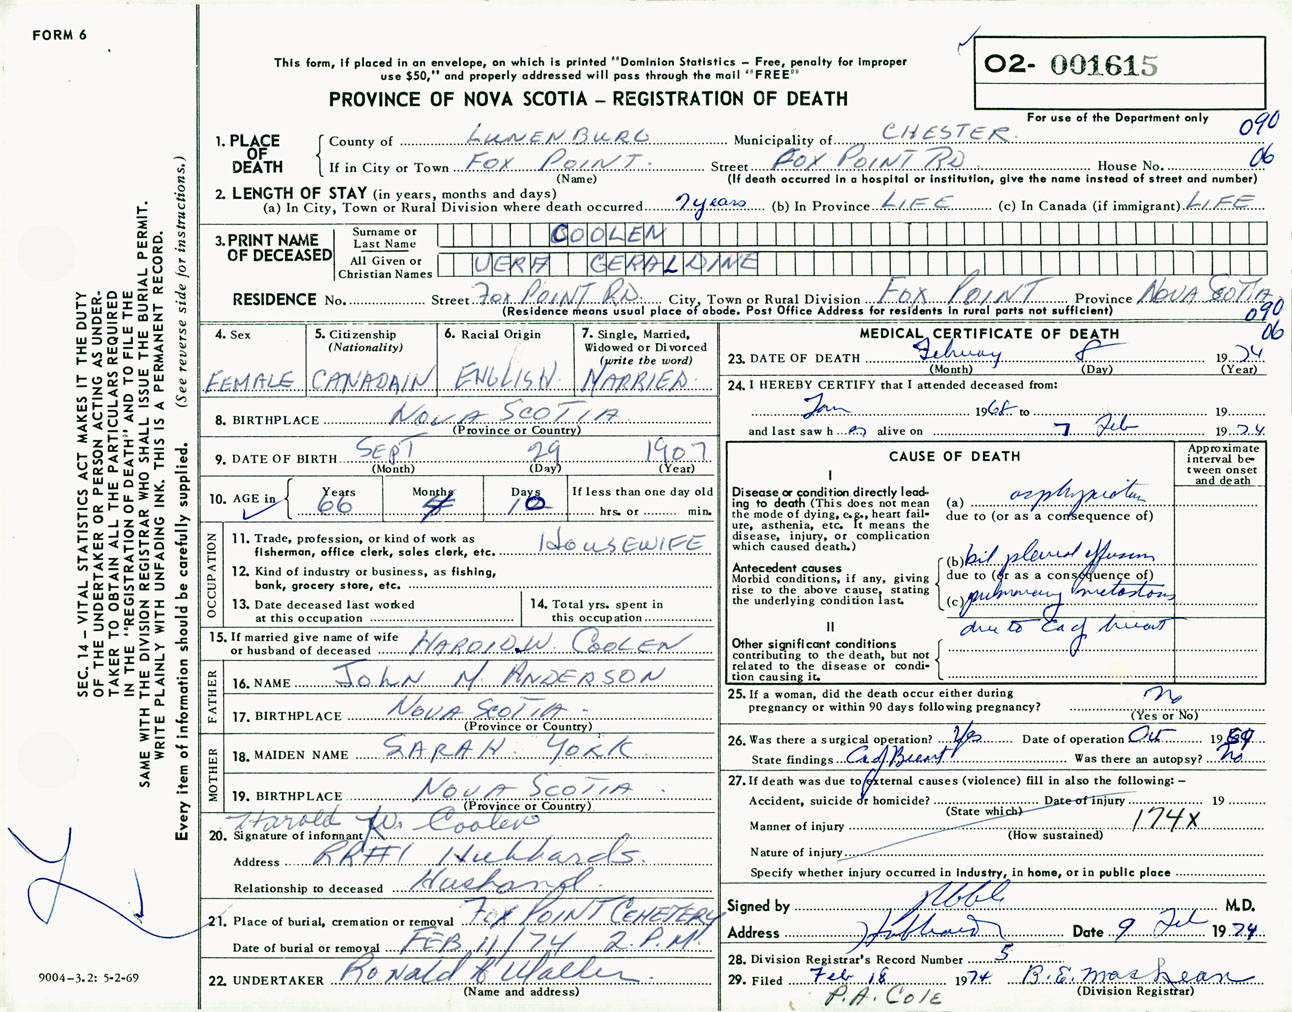 FORM 6
This form, if placed in an envelope, on which is printed "Dominion Statistics – Free, penalty for improper
use $50," and properly addressed will pass through the mail "FREE"
PROVINCE OF NOVA SCOTIA – REGISTRATION OF DEATH
02- 001615
For use of the Department only
090
06
1. PLACE OF DEATH
County of LUNENBURG Municipality of CHESTER
If in City or Town FOX POINT. Street FOX POINT RD. House No.
(Name) (If death occurred in a hospital or institution, give the name instead of street and number)
2. LENGTH OF STAY (in years, months and days)
(a) In City, Town or Rural Division where death occurred 7 years (b) In Province LIFE (c) In Canada (if immigrant) LIFE
3. PRINT NAME OF DECEASED
Surname or Last Name COOLEN
All Given or Christian Names VERA GERALDINE
RESIDENCE No. Street FOX POINT RD. City, Town or Rural Division FOX POINT Province NOVA SCOTIA
(Residence means usual place of abode. Post Office Address for residents in rural parts not sufficient)
090
06
4. Sex
FEMALE
5. Citizenship
(Nationality)
CANADAIN
6. Racial Origin
ENGLISH
7. Single, Married,
Widowed or Divorced
(write the word)
MARRIED.
8. BIRTHPLACE NOVA SCOTIA
(Province or Country)
9. DATE OF BIRTH SEPT 29 1907
(Month) (Day) (Year)
10. AGE in Years Months Days If less than one day old
66 4 10 hrs. or min.
OCCUPATION
11. Trade, profession, or kind of work as
fisherman, office clerk, sales clerk, etc. HOUSEWIFE
12. Kind of industry or business, as fishing,
bank, grocery store, etc.
13. Date deceased last worked
at this occupation
14. Total yrs. spent in
this occupation
15. If married give name of wife
or husband of deceased HAROLD W. COOLEN
FATHER
16. NAME JOHN M. ANDERSON
17. BIRTHPLACE NOVA SCOTIA
(Province or Country)
MOTHER
18. MAIDEN NAME SARAH YORK
19. BIRTHPLACE NOVA SCOTIA
(Province or Country)
20. Signature of informant Harold W. Coolen
Address RR#1 Hubbards.
Relationship to deceased Husband.
21. Place of burial, cremation or removal FOX POINT CEMETERY
Date of burial or removal FEB 11/74 2 P.M.
22. UNDERTAKER Ronald
(Name and address)
MEDICAL CERTIFICATE OF DEATH
23. DATE OF DEATH February 8 1974
(Month) (Day) (Year)
24. I HEREBY CERTIFY that I attended deceased from:
1968 to 19
and last saw h er alive on 7 Feb 1974
CAUSE OF DEATH
Approximate interval between onset and death
I
Disease or condition directly leading to death (This does not mean the mode of dying, e.g., heart failure, asthenia, etc. It means the disease, injury, or complication which caused death.)
(a) asphyxiation
due to (or as a consequence of)
Antecedent causes
Morbid conditions, if any, giving rise to the above cause, stating the underlying condition last.
(b) bil pleural effusion
due to (or as a consequence of)
(c) pulmonary metastasis
due to Ca of breast
II
Other significant conditions
contributing to the death, but not related to the disease or condition causing it.
25. If a woman, did the death occur either during
pregnancy or within 90 days following pregnancy? No
(Yes or No)
26. Was there a surgical operation? Yes Date of operation Oct 19
State findings Ca of Breast Was there an autopsy? No
27. If death was due to external causes (violence) fill in also the following: –
Accident, suicide or homicide? Date of injury 19
(State which)
Manner of injury 174X
(How sustained)
Nature of injury
Specify whether injury occurred in industry, in home, or in public place
Signed by M.D.
Address Hubbards Date 9 Feb 1974
28. Division Registrar's Record Number 5
29. Filed Feb 18 1974 B.E. MacKean
(Division Registrar)
P.A. COLE
SEC. 14 – VITAL STATISTICS ACT MAKES IT THE DUTY
OF THE UNDERTAKER OR PERSON ACTING AS UNDER-
TAKER TO OBTAIN ALL THE PARTICULARS REQUIRED
IN THE "REGISTRATION OF DEATH" AND TO FILE THE
SAME WITH THE DIVISION REGISTRAR WHO SHALL ISSUE THE BURIAL PERMIT.
WRITE PLAINLY WITH UNFADING INK. THIS IS A PERMANENT RECORD.
Every item of information should be carefully supplied. (See reverse side for instructions.)
9004–3.2: 5-2-69